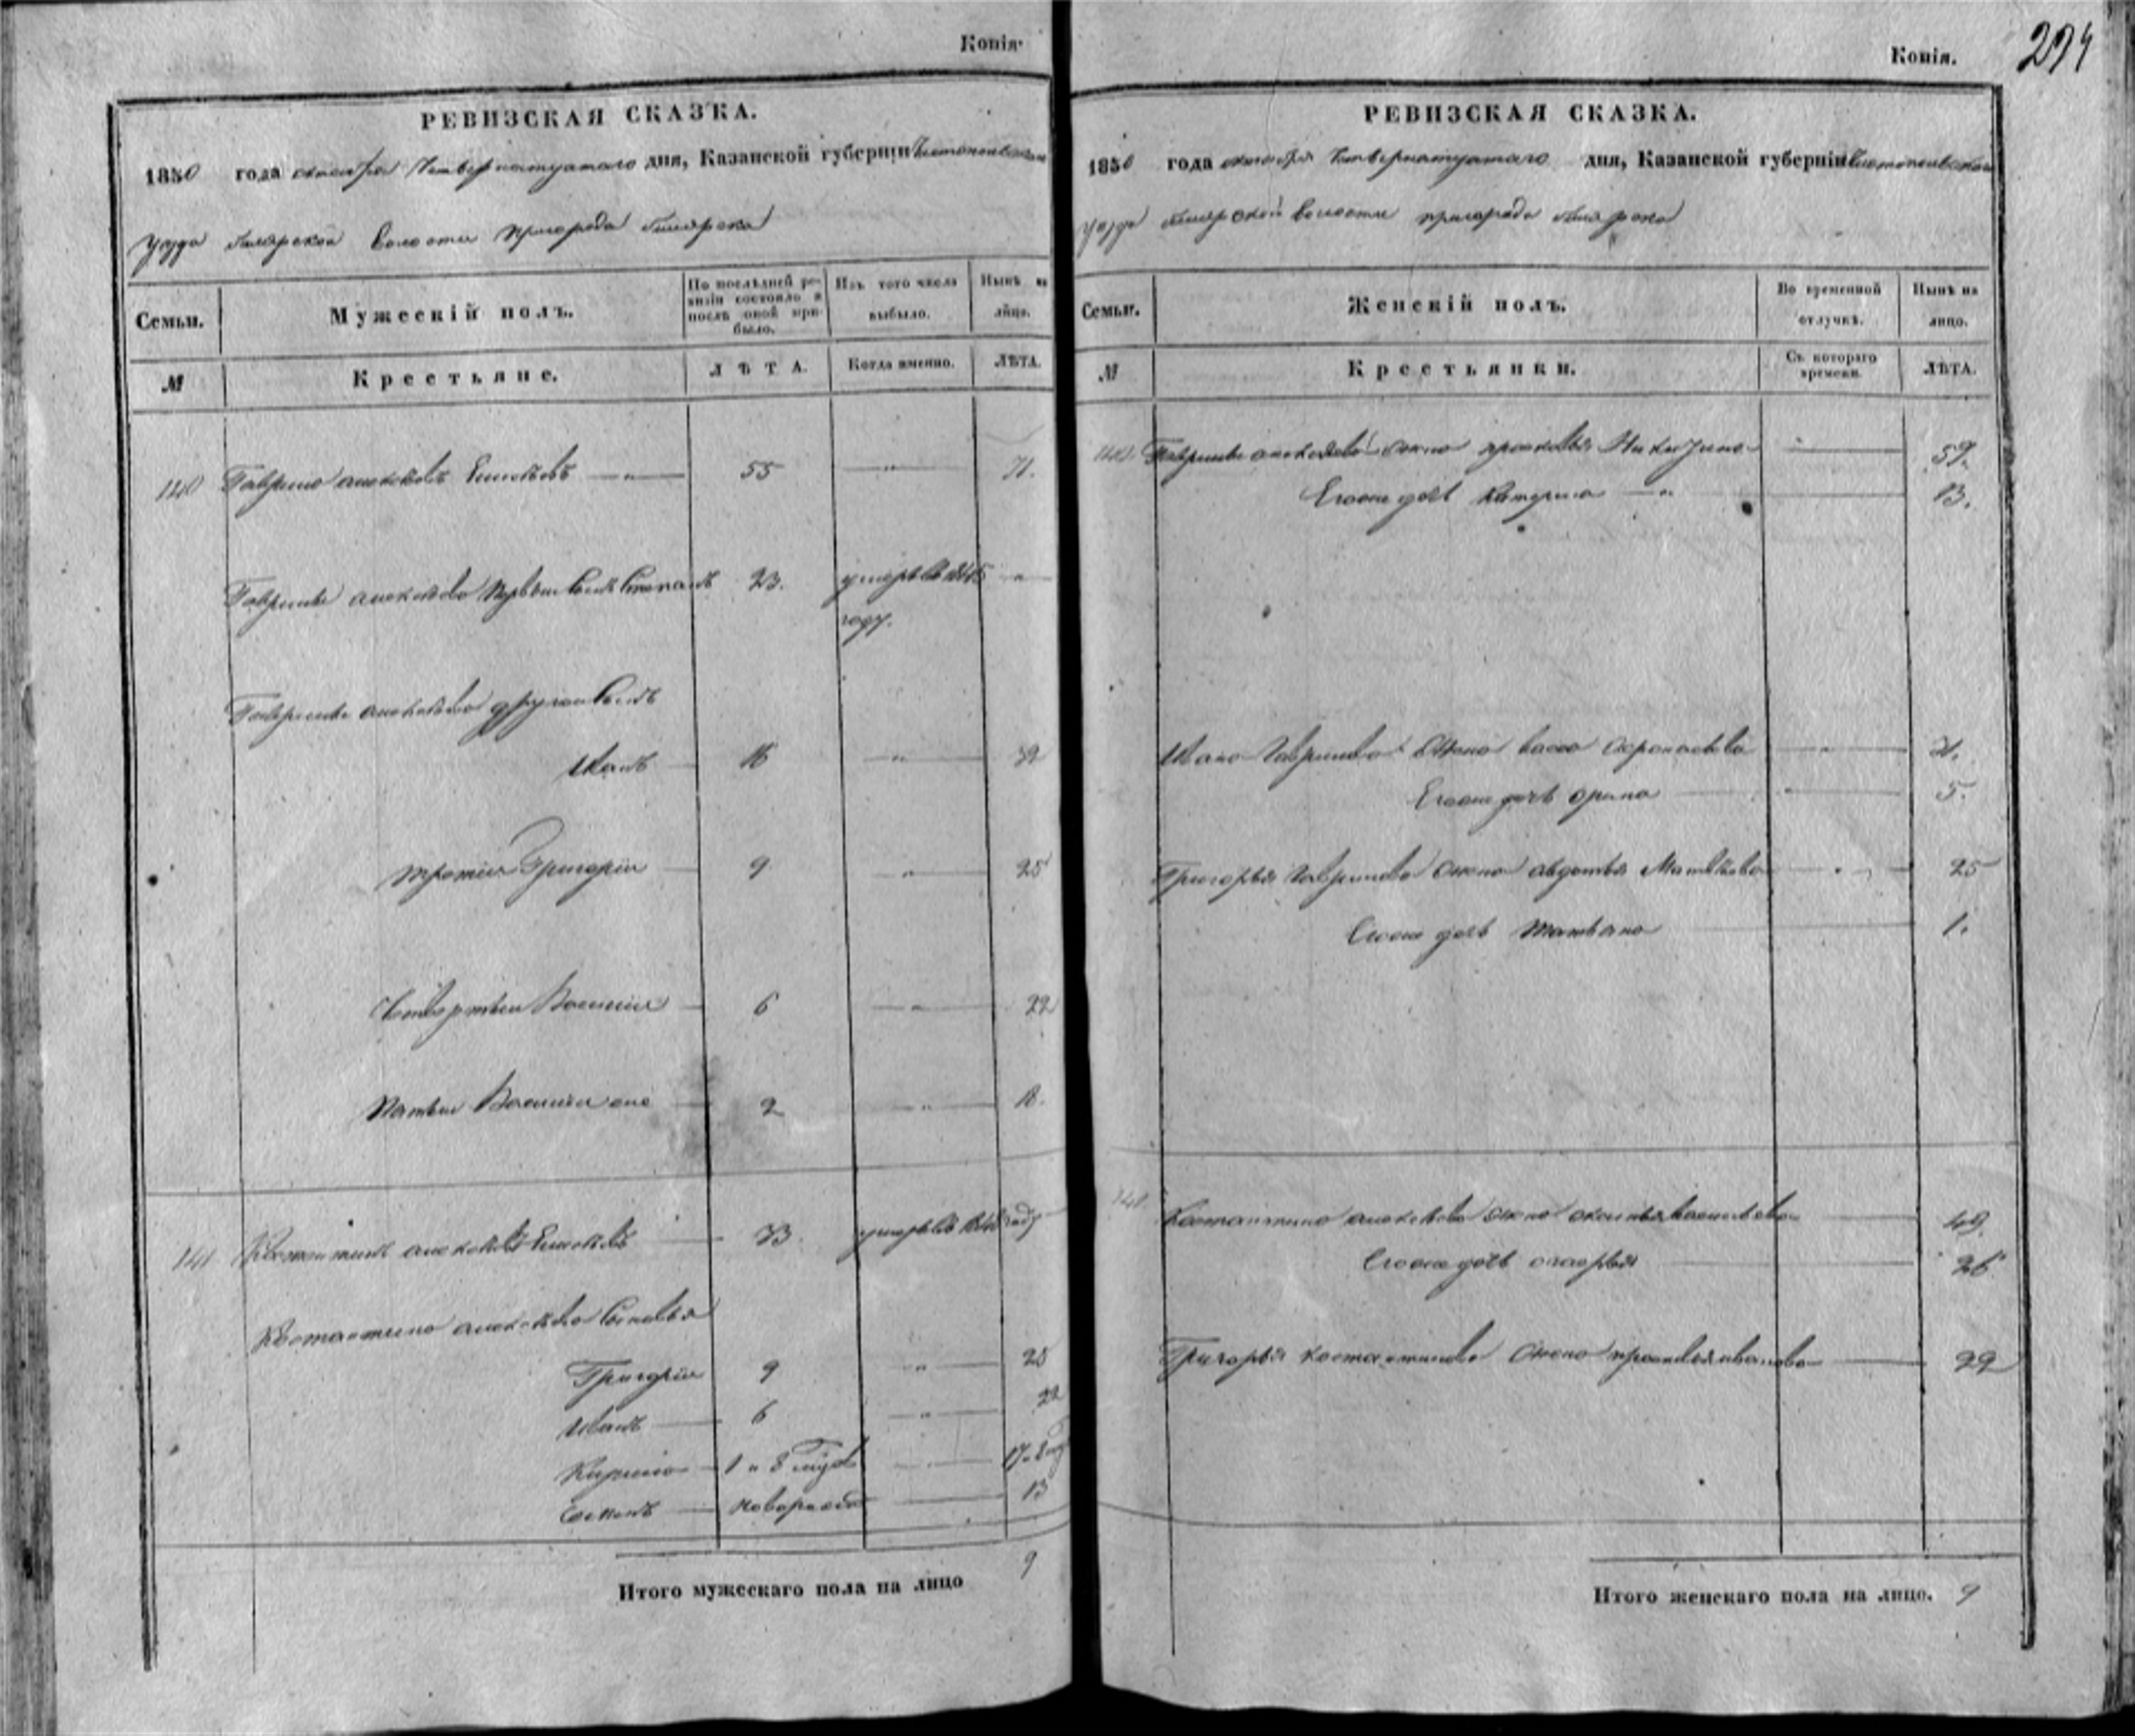 Копія.
РЕВИЗСКАЯ СКАЗКА.
1850 года октября Четвернатцатаго дня, Казанской губерніи Чистопольскаго
уезда билярской волости пригорода билярска
Семьи.
Мужескій полъ.
По послѣдней ревизіи состояло и послѣ оной прибыло.
Изъ того числа выбыло.
Нынѣ на лицо.
№
Крестьяне.
ЛѢТА.
Когда именно.
ЛѢТА.
140 Гаврило алексѣевъ 55 71.
Гаврилы алексѣева первый сынъ Степанъ 23. умеръ въ 1845
году.
Гаврилы алексѣева другой сынъ
Иванъ 16 32
третій Григорій 9 25
Четвертый Василий 6 22
Пятый Василий же 2 18.
141 Костантинъ алексѣевъ 33. умеръ въ году
Костантина алексѣева сыновья
Григорій 9 25
Иванъ 6 22
Кирило 1 и 8 17 и 8
Семенъ новорожден 13
Итого мужескаго пола на лицо 9
Копія.
294
РЕВИЗСКАЯ СКАЗКА.
1850 года октября Четвернатцатаго дня, Казанской губерніи Чистопольскаго
уезда билярской волости пригорода билярска
Семьи.
Женскій полъ.
Во временной отлучкѣ.
Нынѣ на лицо.
№
Крестьянки.
Съ котораго времени.
ЛѢТА.
140 Гаврилы алексѣева жена прасковья Никитина 59.
Егоже дочь Катерина 13.
Ивана Гаврилова Жена васса 31.
Егоже дочь орина 5.
Григорья Гаврилова жена авдотья Матвѣева 25
Егоже дочь Татьяна 1.
141 Костантина алексѣева жена аксинья васильева 49.
Егоже дочь 26
Григорья костантинова жена прасковья иванова 22
Итого женскаго пола на лицо. 9